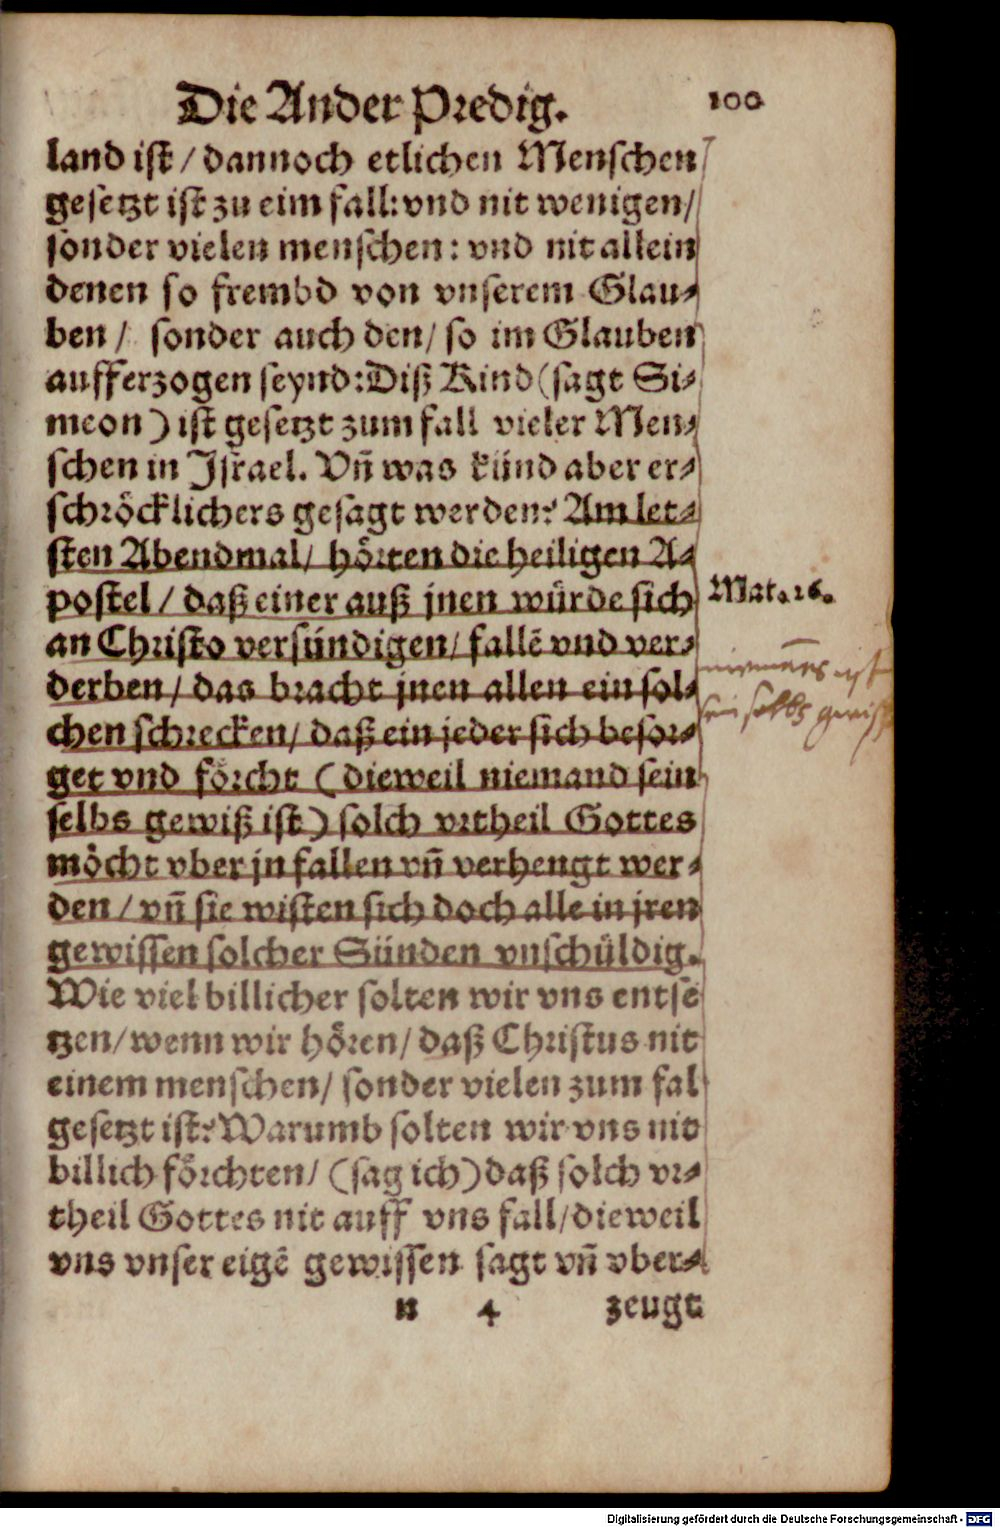 Die Ander Predig. 100
land ist / dannoch etlichen Menschen
gesetzt ist zu eim fall: vnd nit wenigen/
sonder vielen menschen: vnd nit allein
denen so frembd von vnserem Glau-
ben / sonder auch den / so im Glauben
aufferzogen seynd: Diß Kind (sagt Si-
meon) ist gesetzt zum fall vieler Men-
schen in Jsrael. Vn̄ was künd aber er-
schröcklichers gesagt werden? Am let-
sten Abendmal / hörten die heiligen A-
postel / daß einer auß jnen würde sich
Mat. 26.
an Christo versündigen / fallē vnd ver-
derben / das bracht jnen allen ein sol-
chen schrecken / daß ein jeder sich besor-
get vnd förcht (dieweil niemand sein
selbs gewiß ist) solch vrtheil Gottes
möcht vber jn fallen vn̄ verhengt wer-
den / vn̄ sie wisten sich doch alle in jren
gewissen solcher Sünden vnschüldig.
Wie viel billicher solten wir vns entse
tzen / wenn wir hören / daß Christus nit
einem menschen / sonder vielen zum fal
gesetzt ist? Warumb solten wir vns nit
billich förchten / (sag ich) daß solch vr-
theil Gottes nit auff vns fall / dieweil
vns vnser eigē gewissen sagt vn̄ vber-
n 4 zeugt
ist
sein selbs
Digitalisierung gefördert durch die Deutsche Forschungsgemeinschaft - DFG